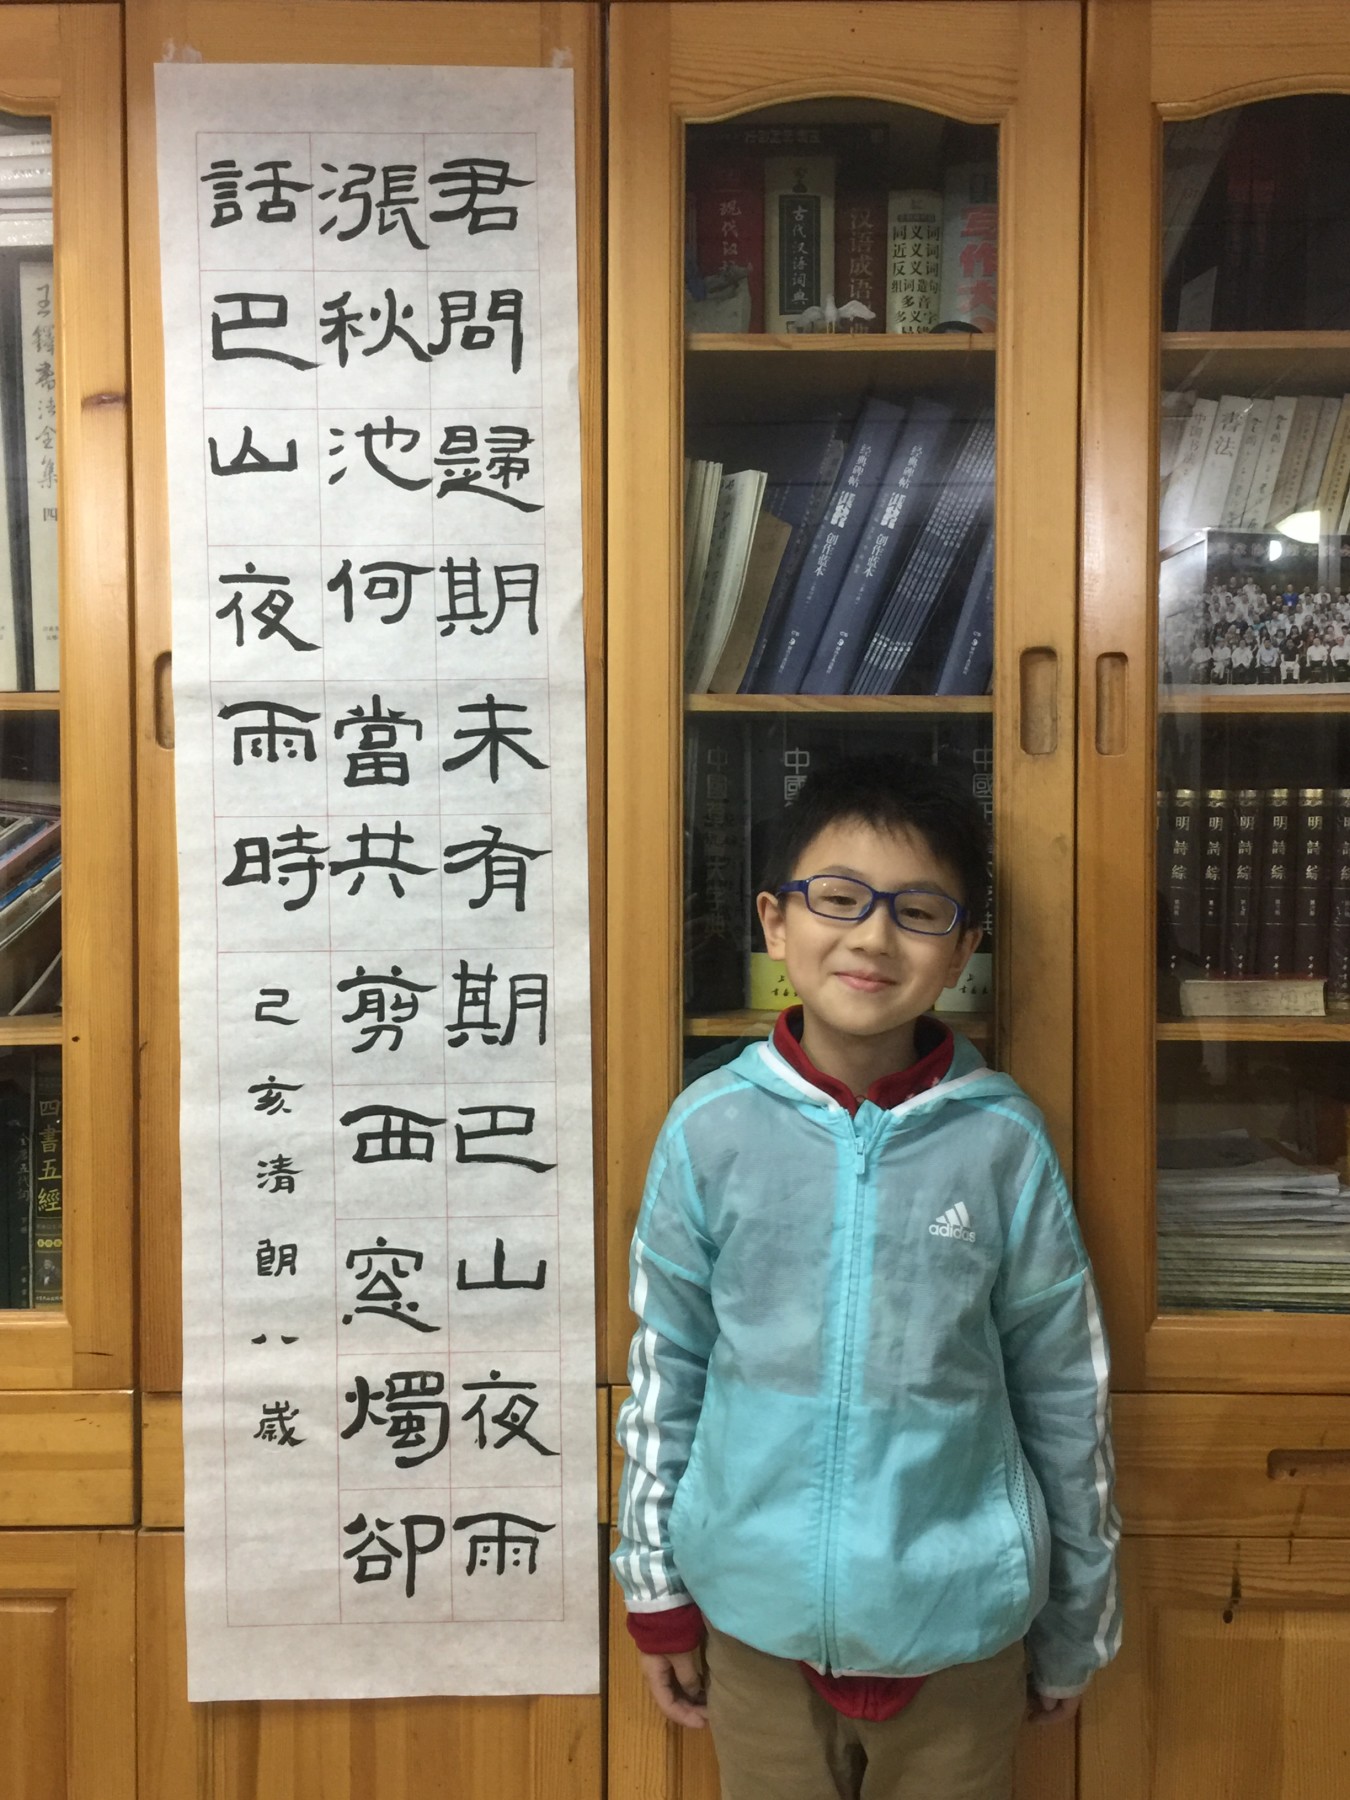 君問歸期未有期巴山夜雨
漲秋池何當共剪西窓燭卻
話巴山夜雨時
己亥清朗八歲
adidas
现代汉
古代汉语词典
汉语成语
同义词
近义词
反义词
组词造句
多音
多义字
写作大
经典碑帖
创作蓝本
经典碑帖
创作蓝本
書法
中國
大字典
中國
中國
明詩綜
明詩綜
明詩綜
明詩綜
明詩綜
王鐸書法全集
四
四書五經
全唐五代詞